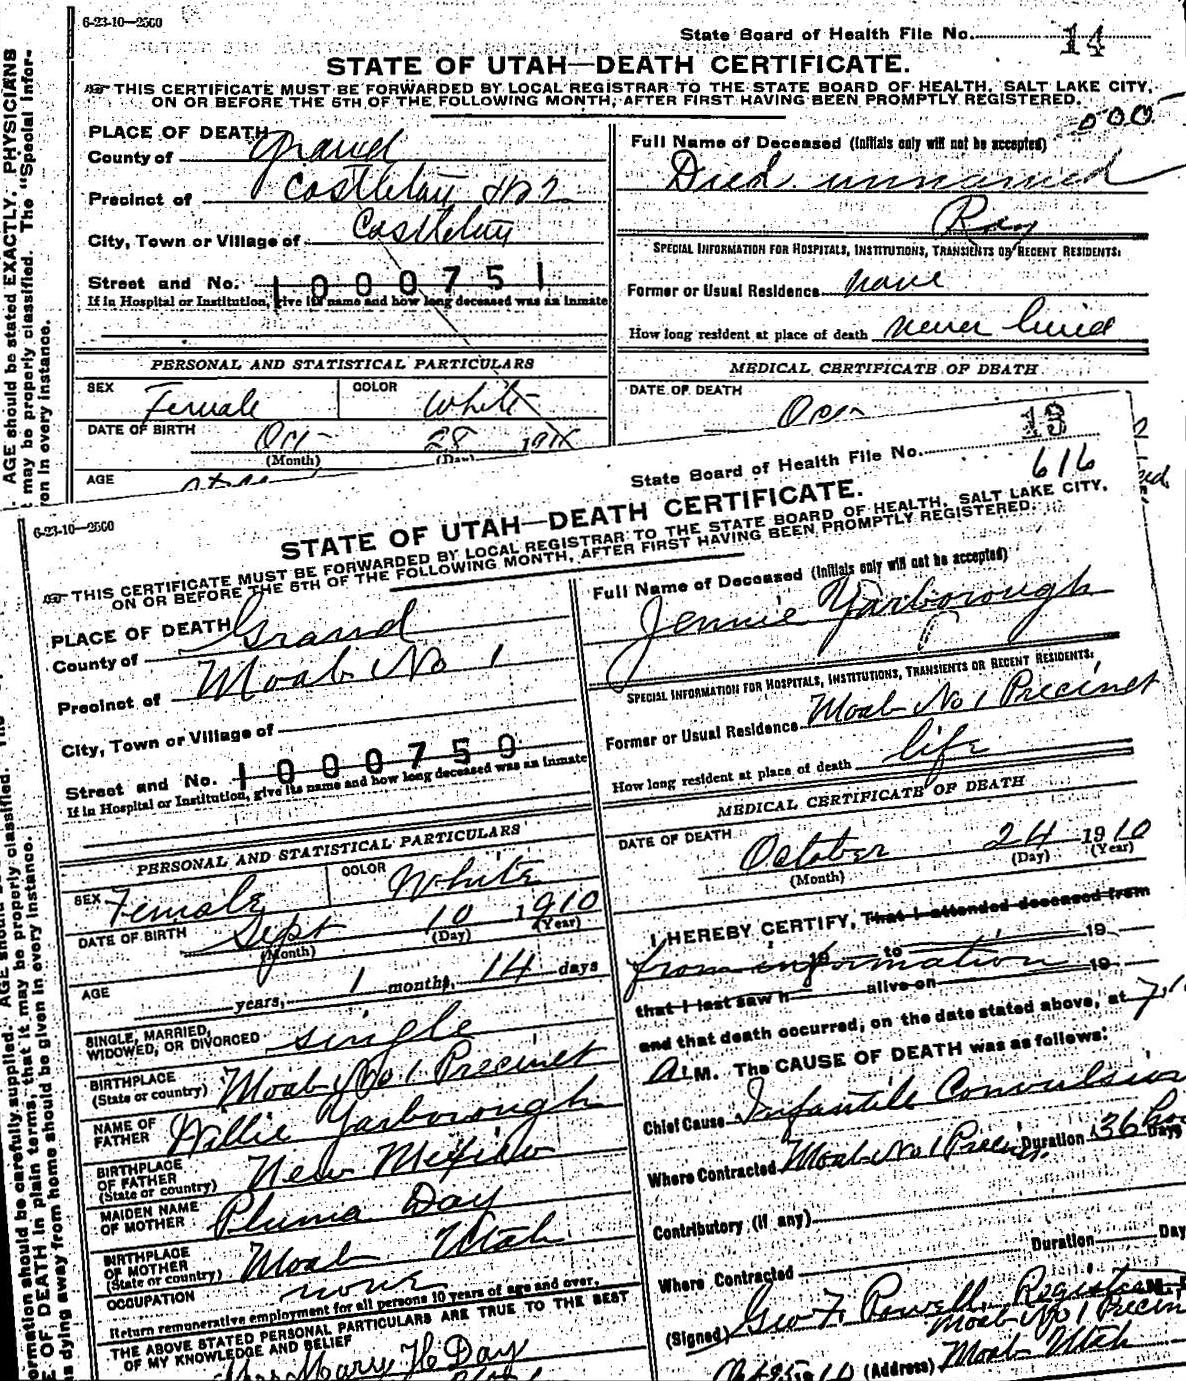 6-23-10—2500
State Board of Health File No. 14
STATE OF UTAH—DEATH CERTIFICATE.
THIS CERTIFICATE MUST BE FORWARDED BY LOCAL REGISTRAR TO THE STATE BOARD OF HEALTH, SALT LAKE CITY,
ON OR BEFORE THE 5TH OF THE FOLLOWING MONTH, AFTER FIRST HAVING BEEN PROMPTLY REGISTERED.
PLACE OF DEATH
County of Grand
Precinct of Castleton
City, Town or Village of Castleton
Street and No. 1000751
If in Hospital or Institution, give its name and how long deceased was an inmate
Full Name of Deceased (Initials only will not be accepted)
Died unnamed
Ray
SPECIAL INFORMATION FOR HOSPITALS, INSTITUTIONS, TRANSIENTS OR RECENT RESIDENTS:
Former or Usual Residence none
How long resident at place of death never lived
PERSONAL AND STATISTICAL PARTICULARS
SEX Female COLOR White
DATE OF BIRTH Oct 28 191
(Month) (Day)
AGE
MEDICAL CERTIFICATE OF DEATH
DATE OF DEATH
Oct
AGE should be stated EXACTLY. PHYSICIANS
may be properly classified. The "Special Infor-
in every instance.
6-23-10—2500
State Board of Health File No. 13
616
STATE OF UTAH—DEATH CERTIFICATE.
THIS CERTIFICATE MUST BE FORWARDED BY LOCAL REGISTRAR TO THE STATE BOARD OF HEALTH, SALT LAKE CITY,
ON OR BEFORE THE 5TH OF THE FOLLOWING MONTH, AFTER FIRST HAVING BEEN PROMPTLY REGISTERED.
PLACE OF DEATH
County of Grand
Precinct of Moab No 1
City, Town or Village of
Street and No. 1000750
If in Hospital or Institution, give its name and how long deceased was an inmate
PERSONAL AND STATISTICAL PARTICULARS
SEX Female COLOR White
DATE OF BIRTH Sept 10 1910
(Month) (Day) (Year)
AGE years, 1 months, 14 days
SINGLE, MARRIED,
WIDOWED, OR DIVORCED single
BIRTHPLACE
(State or country) Moab No. 1 Precinct
NAME OF
FATHER Willie Yarborough
BIRTHPLACE
OF FATHER
(State or country) New Mexico
MAIDEN NAME
OF MOTHER Pluma Day
BIRTHPLACE
OF MOTHER
(State or country) Moab Utah
OCCUPATION none
Return remunerative employment for all persons 10 years of age and over.
THE ABOVE STATED PERSONAL PARTICULARS ARE TRUE TO THE BEST
OF MY KNOWLEDGE AND BELIEF
Mrs Mary H Day
Full Name of Deceased (Initials only will not be accepted)
Jennie Yarborough
SPECIAL INFORMATION FOR HOSPITALS, INSTITUTIONS, TRANSIENTS OR RECENT RESIDENTS:
Former or Usual Residence Moab No 1 Precinct
How long resident at place of death life
MEDICAL CERTIFICATE OF DEATH
DATE OF DEATH
October 24 1910
(Month) (Day) (Year)
I HEREBY CERTIFY, That I attended deceased from
from information
19 to 19
that I last saw h alive on 19
and that death occurred, on the date stated above, at 7.1
A.M. The CAUSE OF DEATH was as follows:
Chief Cause Infantile Convulsion
Where Contracted Moab No 1 Precinct. Duration 36 Days
Contributory (if any)
Duration Day
Where Contracted
(Signed) Geo F. Powell, Registrar M.
Moab No 1 Precin
(Address) Moab Utah
ormation should be carefully supplied. AGE should
E OF DEATH in plain terms, that it may be properly classified.
s dying away from home should be given in every instance.